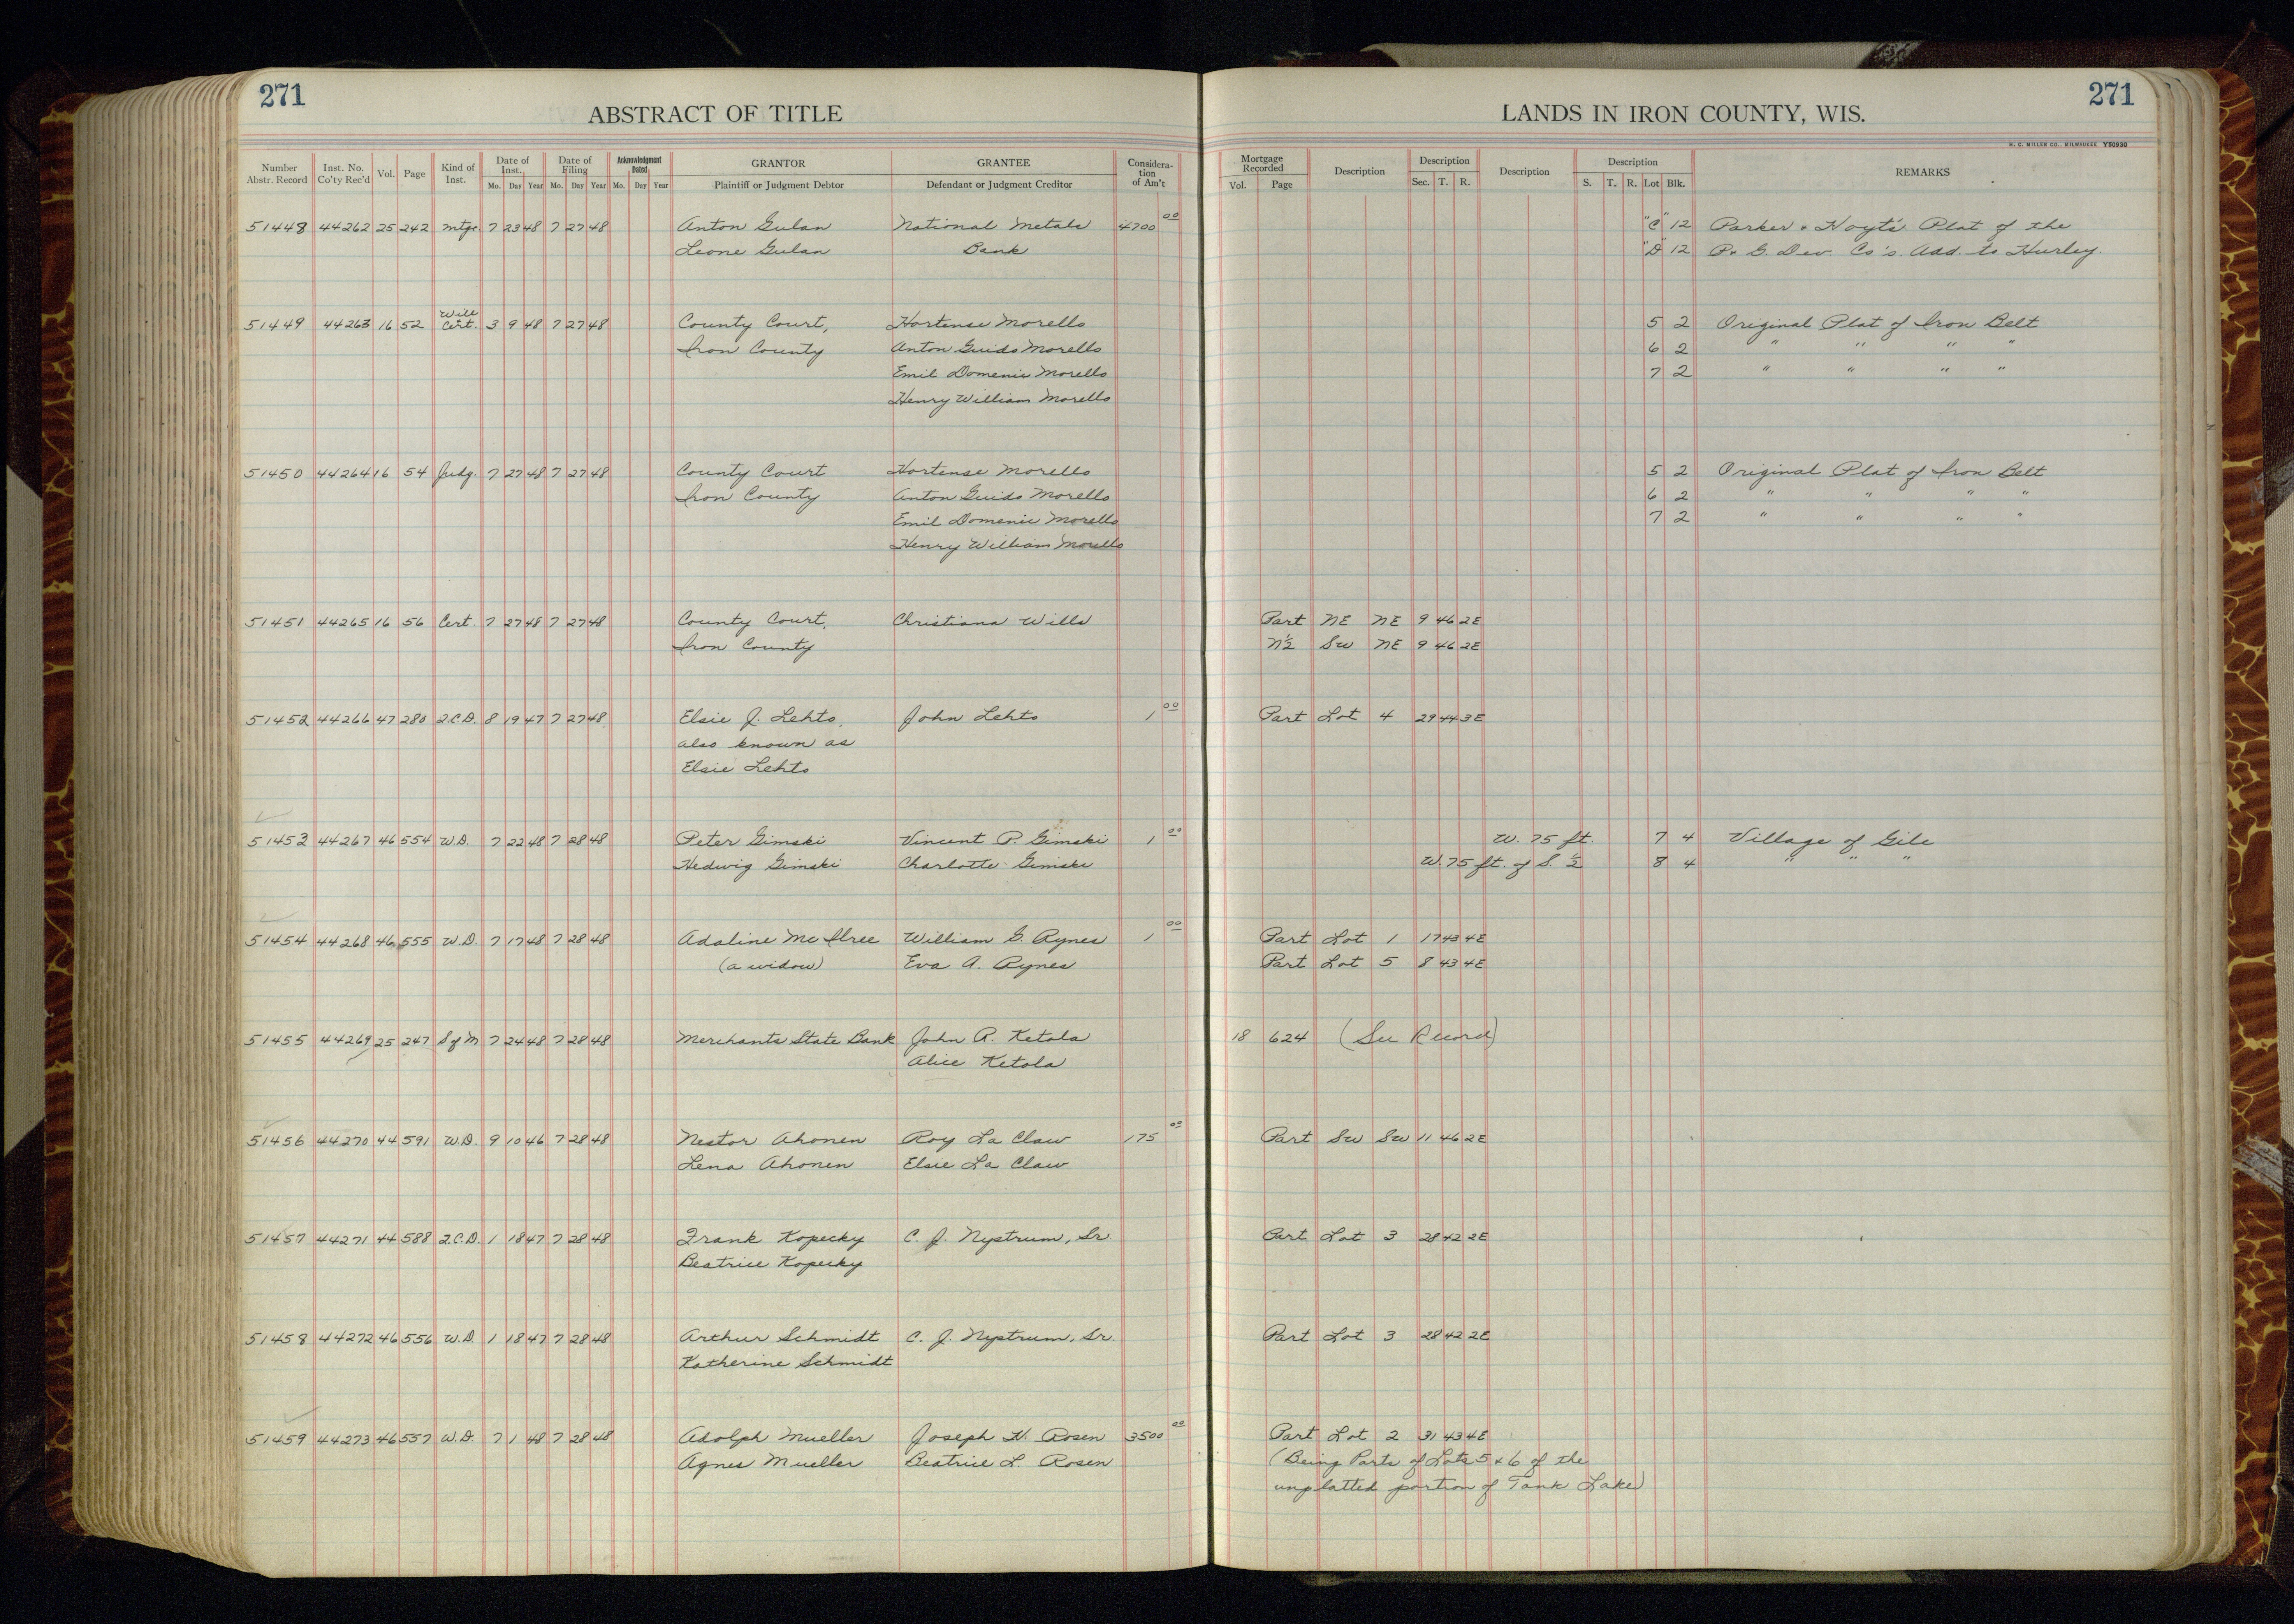 271
ABSTRACT OF TITLE
LANDS IN IRON COUNTY, WIS.
271
H. C. MILLER CO., MILWAUKEE Y50930
Number Abstr. Record Inst. No. Co'ty Rec'd Vol. Page Kind of Inst. Date of Inst. Mo. Day Year Date of Filing Mo. Day Year Acknowledgment Dated Mo. Day Year GRANTOR Plaintiff or Judgment Debtor GRANTEE Defendant or Judgment Creditor Considera-tion of Am't Mortgage Recorded Vol. Page Description Description Sec. T. R. Description Description S. T. R. Lot Blk. REMARKS
51448 44262 25 242 Mtge. 7 23 48 7 27 48 Anton Gulan National Metals 4700 00 "C" 12 Parker & Hoyt's Plat of the
Leone Gulan Bank "D" 12 P. & G. Dev. Co's. Add. to Hurley.
51449 44263 16 52 Will Cert. 3 9 48 7 27 48 County Court, Hortense Morello 5 2 Original Plat of Iron Belt
Iron County Anton Guido Morello 6 2 " " " "
Emil Domenic Morello 7 2 " " " "
Henry William Morello
51450 44264 16 54 Judg. 7 27 48 7 27 48 County Court Hortense Morello 5 2 Original Plat of Iron Belt
Iron County Anton Guido Morello 6 2 " " " "
Emil Domenic Morello 7 2 " " " "
Henry William Morello
51451 44265 16 56 Cert. 7 27 48 7 27 48 County Court, Christiana Wills Part NE NE 9 46 2E
Iron County N½ SW NE 9 46 2E
51452 44266 47 280 Q.C.D. 8 19 47 7 27 48 Elsie J. Lehto, John Lehto 1 00 Part Lot 4 29 44 3E
also known as
Elsie Lehto
51453 44267 46 554 W.D. 7 22 48 7 28 48 Peter Gimski Vincent P. Gimski 1 00 W. 75 ft. 7 4 Village of Gile
Hedwig Gimski Charlotte Gimski W. 75 ft. of S. ½ 8 4 " " "
51454 44268 46 555 W.D. 7 17 48 7 28 48 Adaline McIlree William G. Rynes 1 00 Part Lot 1 17 43 4E
(a widow) Eva A. Rynes Part Lot 5 8 43 4E
51455 44269 25 247 S of M 7 24 48 7 28 48 Merchants State Bank John R. Ketola 18 624 (See Record)
Alice Ketola
51456 44270 44 591 W.D. 9 10 46 7 28 48 Nestor Ahonen Roy La Claw 175 00 Part SW SW 11 46 2E
Lena Ahonen Elsie La Claw
51457 44271 44 588 Q.C.D. 1 18 47 7 28 48 Frank Kopecky C. J. Nystrum, Sr. Part Lot 3 28 42 2E
Beatrice Kopecky
51458 44272 46 556 W.D. 1 18 47 7 28 48 Arthur Schmidt C. J. Nystrum, Sr. Part Lot 3 28 42 2E
Katherine Schmidt
51459 44273 46 557 W.D. 7 1 48 7 28 48 Adolph Mueller Joseph H. Rosen 3500 00 Part Lot 2 31 43 4E
Agnes Mueller Beatrice L. Rosen (Being Parts of Lots 5 & 6 of the
unplatted portion of Tank Lake)